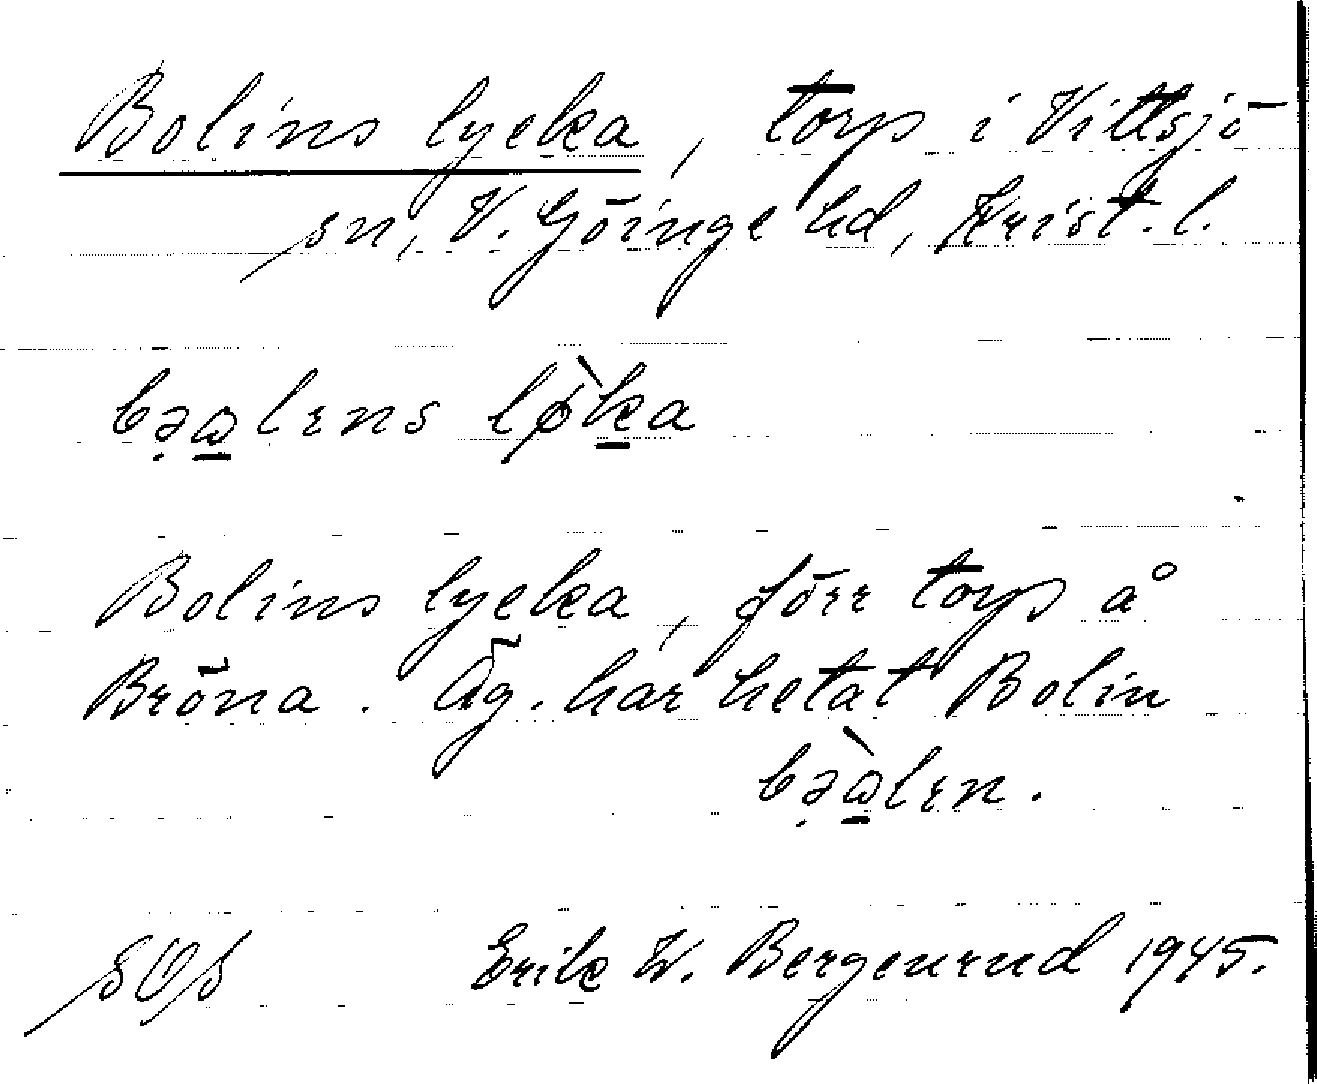 Bolins lycka, torp i Vittsjö
sn, V. Göinge hd, Krist. l.
bəωlens lø̀ka
Bolins lycka, förr torp å
Bröna. Äg. har hetat Bolin
bəὼlen.
SOS Erik W. Bergenrud 1945.